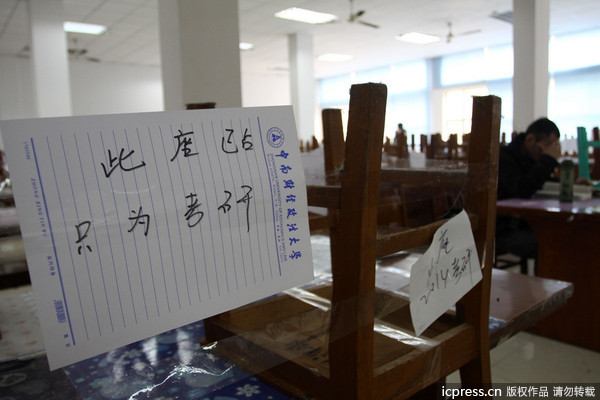 此座已占
只为考研
中南财经政法大学
座
2014考研
icpress.cn 版权作品 请勿转载